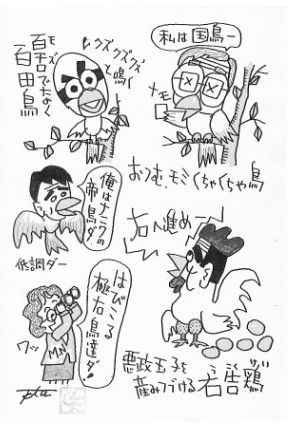 百舌でなく
モズ
百田鳥
クズクズクズ
と鳴く
私は国鳥ー
メモ
おつむ、モミくちゃくちゃ鳥
俺はナニワの
帝鳥ダ。
低調ダー
右へ進めー
はびこる
極右鳥達ダ!
ワッ
MM
悪政玉子を
産みつづける右告鶏